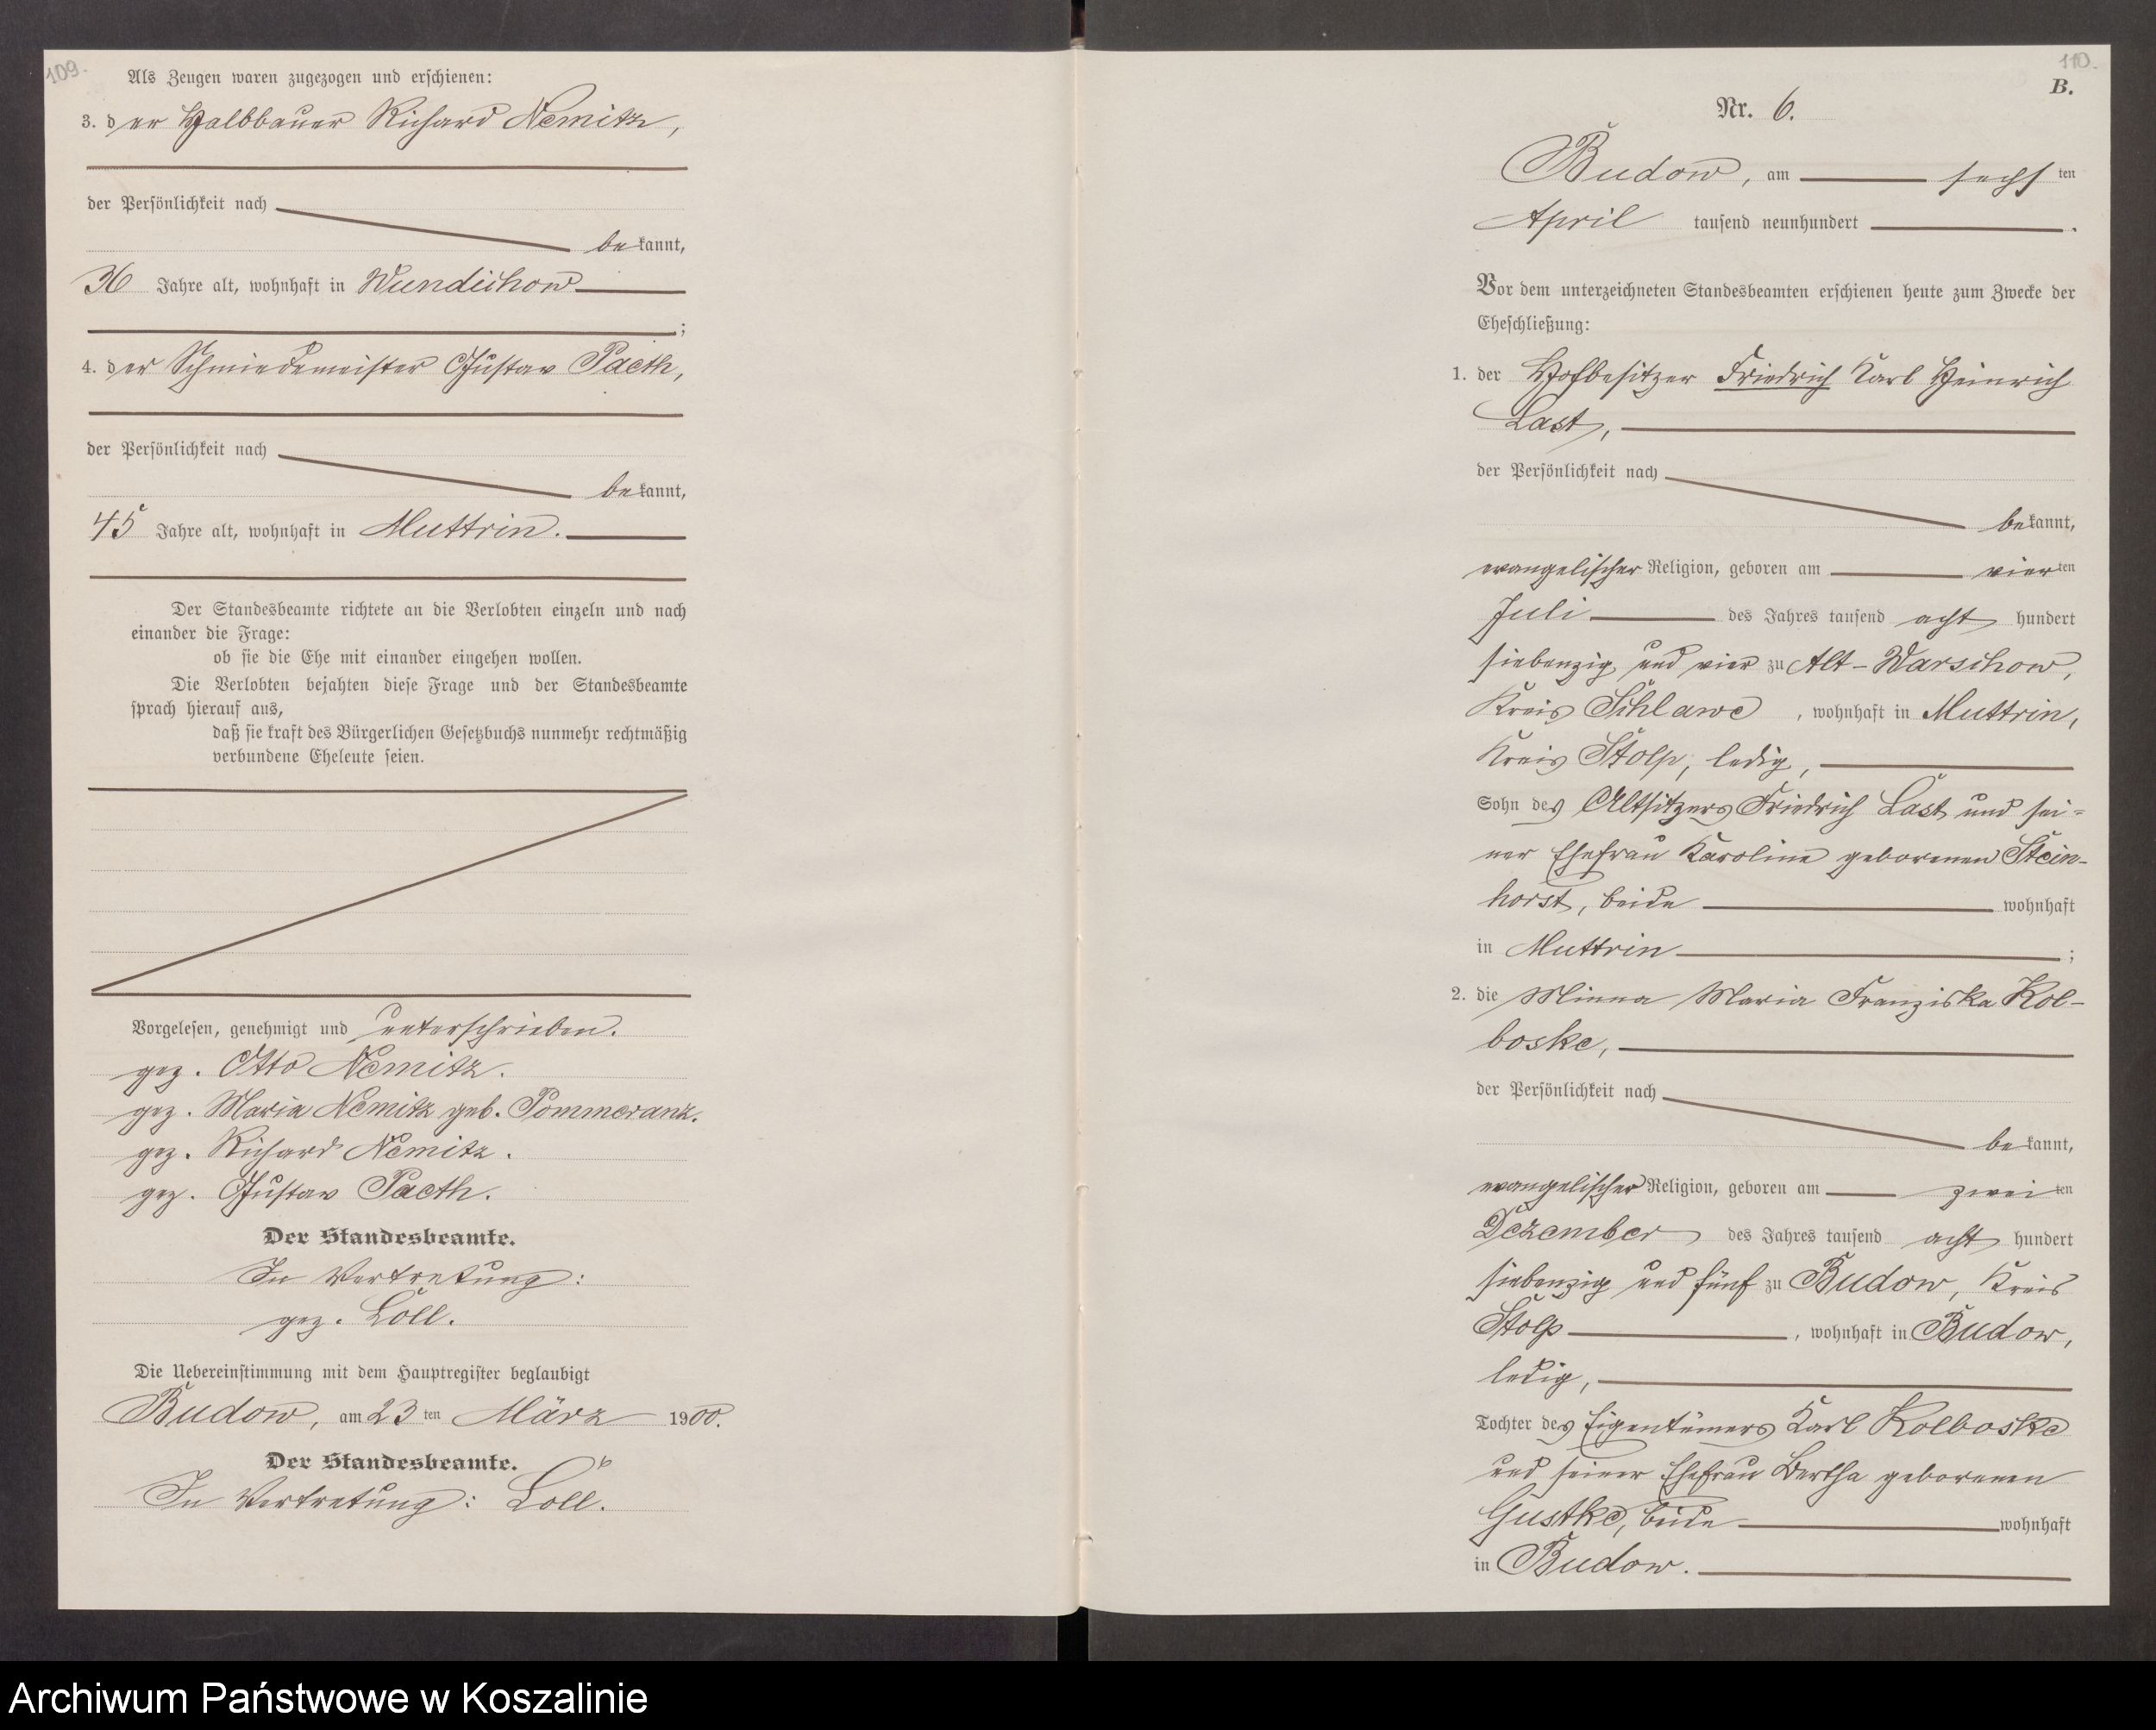 109.
Als Zeugen waren zugezogen und erschienen:
3. der Halbbauer Richard Nemitz,
der Persönlichkeit nach
bekannt,
36 Jahre alt, wohnhaft in Wundichow
;
4. der Schmiedemeister Gustav Paeth,
der Persönlichkeit nach
bekannt,
45 Jahre alt, wohnhaft in Muttrin.
Der Standesbeamte richtete an die Verlobten einzeln und nach
einander die Frage:
ob sie die Ehe mit einander eingehen wollen.
Die Verlobten bejahten diese Frage und der Standesbeamte
sprach hierauf aus,
daß sie kraft des Bürgerlichen Gesetzbuchs nunmehr rechtmäßig
verbundene Eheleute seien.
Vorgelesen, genehmigt und unterschrieben.
gez. Otto Nemitz.
gez. Maria Nemitz geb. Pommeranz.
gez. Richard Nemitz.
gez. Gustav Paeth.
Der Standesbeamte.
In Vertretung:
gez. Loll.
Die Uebereinstimmung mit dem Hauptregister beglaubigt
Budow, am 23ten März 1900.
Der Standesbeamte.
In Vertretung: Loll.
110.
B.
Nr. 6.
Budow, am sechsten
April tausend neunhundert .
Vor dem unterzeichneten Standesbeamten erschienen heute zum Zwecke der
Eheschließung:
1. der Hofbesitzer Friedrich Karl Heinrich
Last,
der Persönlichkeit nach
bekannt,
evangelischer Religion, geboren am vierten
Juli des Jahres tausend acht hundert
siebenzig und vier zu Alt-Warschow,
Kreis Schlawe, wohnhaft in Muttrin,
Kreis Stolp, ledig,
Sohn des Altsitzers Friedrich Last und sei=
ner Ehefrau Karoline geborenen Stein-
horst, beide wohnhaft
in Muttrin ;
2. die Minna Maria Franziska Kol-
boske,
der Persönlichkeit nach
bekannt,
evangelischer Religion, geboren am zweiten
Dezember des Jahres tausend acht hundert
siebenzig und fünf zu Budow, Kreis
Stolp, wohnhaft in Budow,
ledig,
Tochter des Eigentümers Karl Kolboske
und seiner Ehefrau Bertha geborenen
Gustke, beide wohnhaft
in Budow.
Archiwum Państwowe w Koszalinie